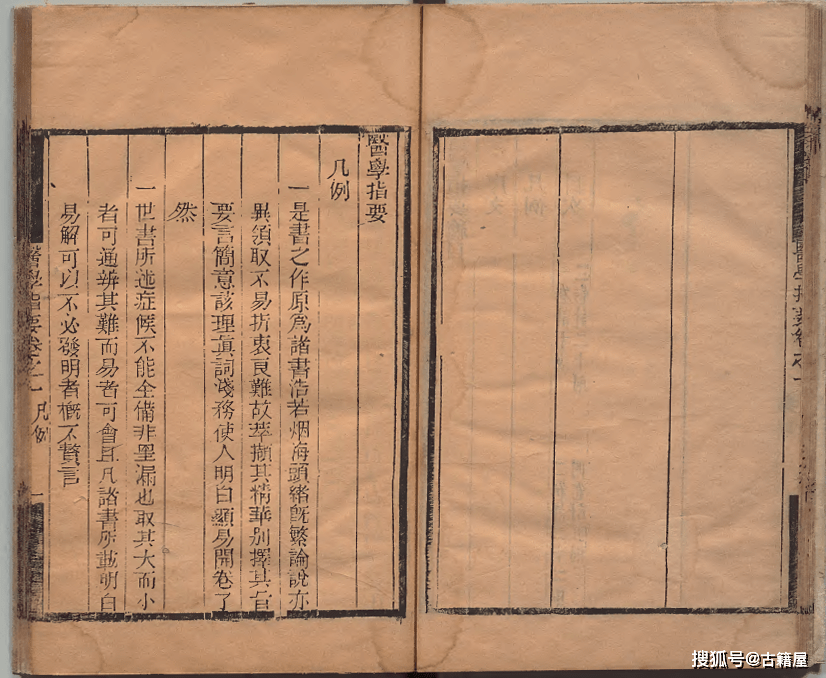 醫學指要卷之一
醫學指要
凡例
一是書之作原爲諸書浩若烟海頭緒旣繁論說亦
異領取不易折衷良難故萃擷其精華別擇其旨
要言簡意該理眞詞淺務使人明白顯易開卷了
然
一世書所述症候不能全備非罣漏也取其大而小
者可通辨其難而易者可會且凡諸書所載明白
易解可以不必發明者槪不贅言
醫學指要卷之一 凡例 一
搜狐号@古籍屋